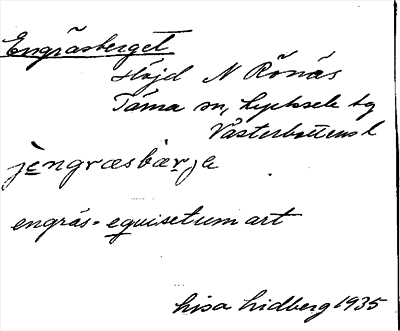 Engräsberget
Höjd N Rönäs
Tärna sn, Lycksele lg
Västerbottens l
jèngræsbærje
engräs = equisetum art
Lisa Lidberg 1935